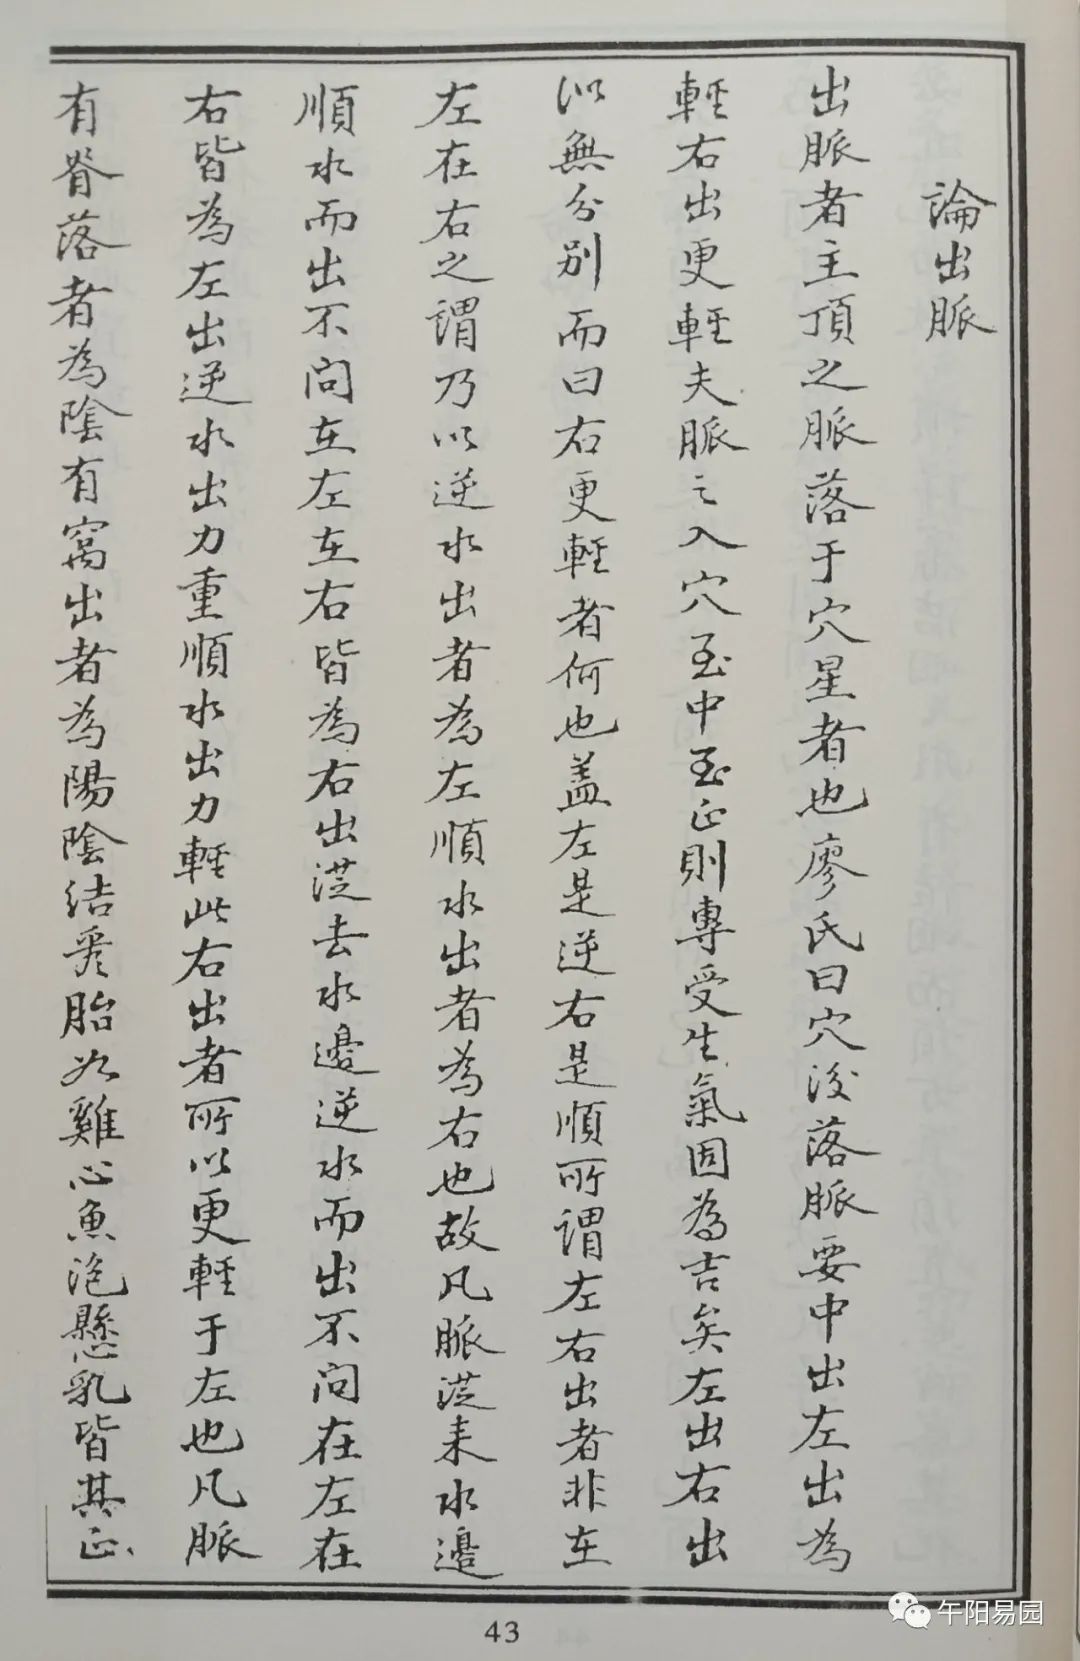 論出脈
出脈者主頂之脈落于穴星者也廖氏曰穴後落脈要中出左出為
輕右出更輕夫脈之入穴至中至正則專受生氣固為吉矣左出右出
似無分別而曰右更輕者何也蓋左是逆右是順所謂左右出者非在
左在右之謂乃以逆水出者為左順水出者為右也故凡脈從来水邊
順水而出不问在左在右皆為右出從去水邊逆水而出不问在左在
右皆為左出逆水出力重順水出力輕此右出者所以更輕于左也凡脈
有脊落者為陰有窩出者為陽陰结受胎如雞心魚泡懸乳皆其正
43
午阳易园